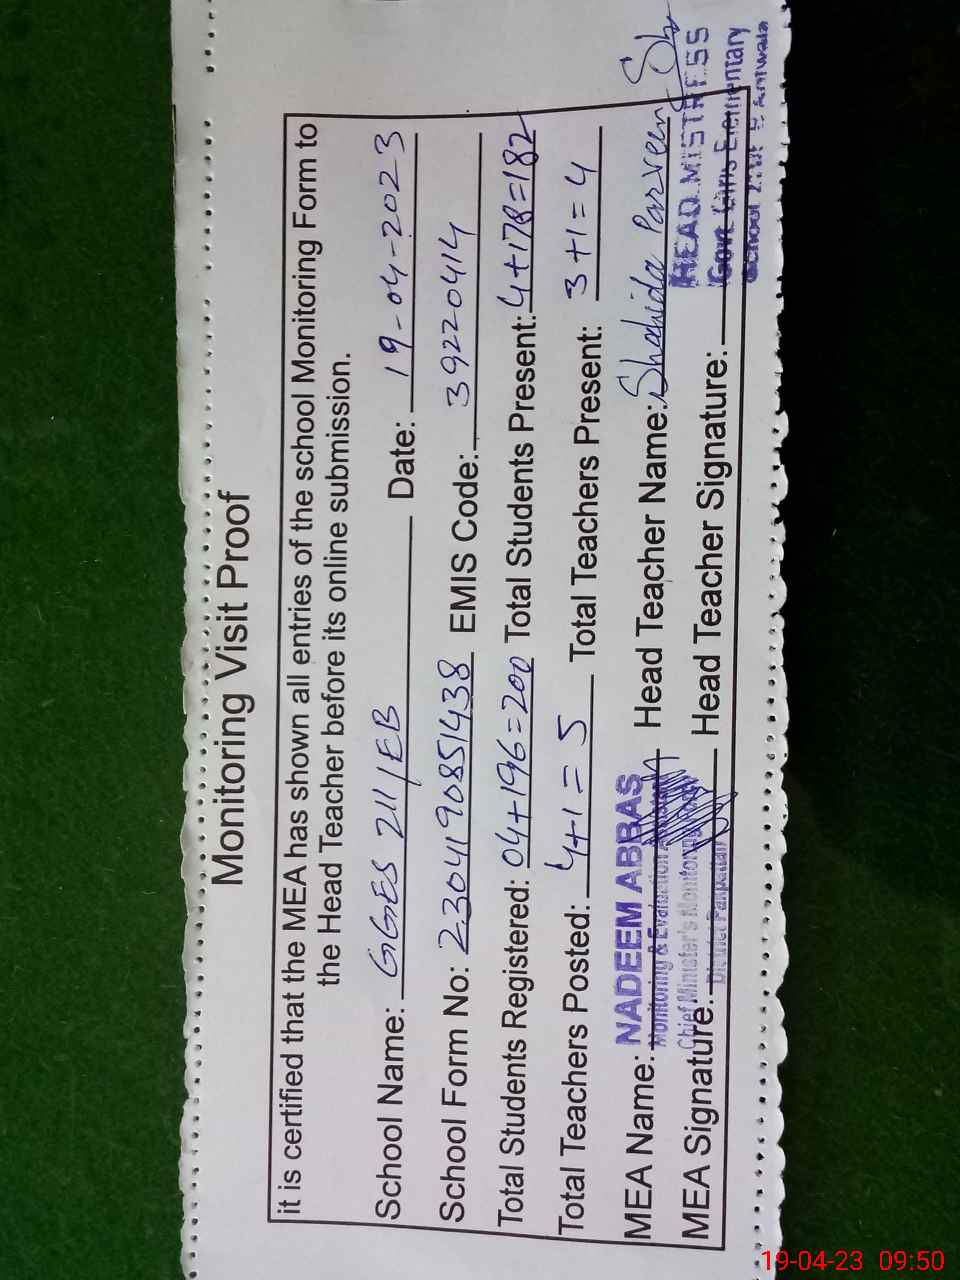 Monitoring Visit Proof
it is certified that the MEA has shown all entries of the school Monitoring Form to
the Head Teacher before its online submission.
School Name: GGES 211/EB Date: 19-04-2023
School Form No: 2304190851438 EMIS Code: 39220414
Total Students Registered: 04+196=200 Total Students Present: 4+178=182
Total Teachers Posted: 4+1=5 Total Teachers Present: 3+1=4
MEA Name: NADEEM ABBAS Head Teacher Name: Shahida Parveen
Monitoring & Evaluation
Chief Minister's Monitoring
District Pakpattan
MEA Signature: Head Teacher Signature:
HEAD MISTRESS
Govt. Girls Elementary
School
19-04-23 09:50